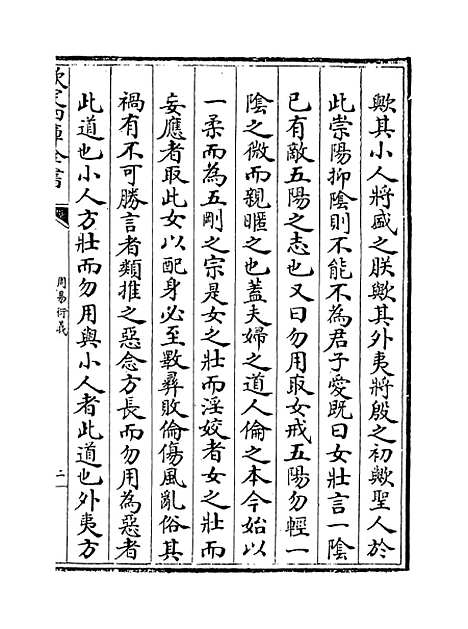 歟其小人將盛之朕歟其外夷將殷之初歟聖人於
此崇陽抑陰則不能不為君子愛既曰女壯言一陰
已有敵五陽之志也又曰勿用取女戒五陽勿輕一
陰之微而親暱之也蓋夫婦之道人倫之本今始以
一柔而為五剛之宗是女之壯而淫姣者女之壯而
妄應者取此女以配身必至斁彝敗倫傷風亂俗其
禍有不可勝言者類推之惡念方長而勿用為惡者
此道也小人方壯而勿用與小人者此道也外夷方
欽定四庫全書
周易衍義